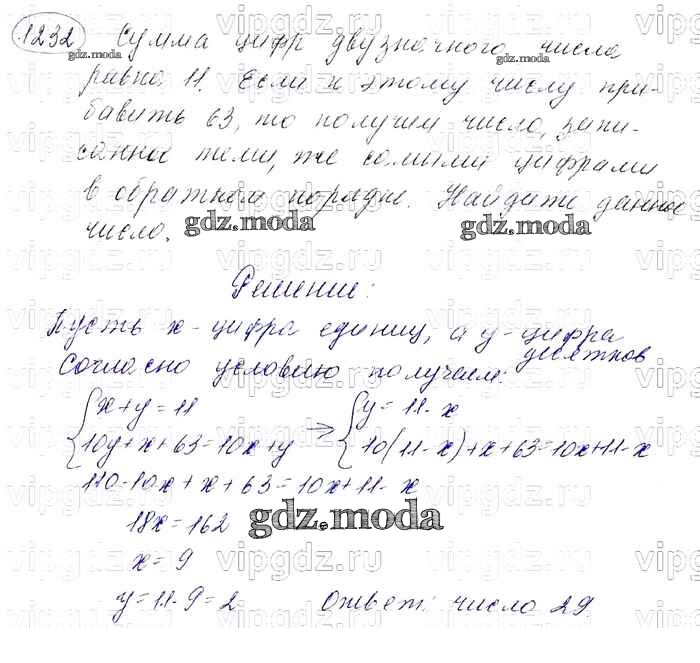 1232 Сумма цифр двузначного числа
равна 11. Если к этому числу при-
бавить 63, то получим число, запи-
санное теми, же самыми цифрами
в обратном порядке. Найдите данное
число.
gdz.moda
gdz.moda
gdz.moda
gdz.moda
Решение:
Пусть x - цифра единиц, а y - цифра
десятков
Согласно условию получаем:
{x+y=11 → {y=11-x
10y+x+63=10x+y 10(11-x)+x+63=10x+11-x
110-10x+x+63=10x+11-x
18x=162
gdz.moda
x=9
y=11-9=2 Ответ: число 29
vipgdz.ru